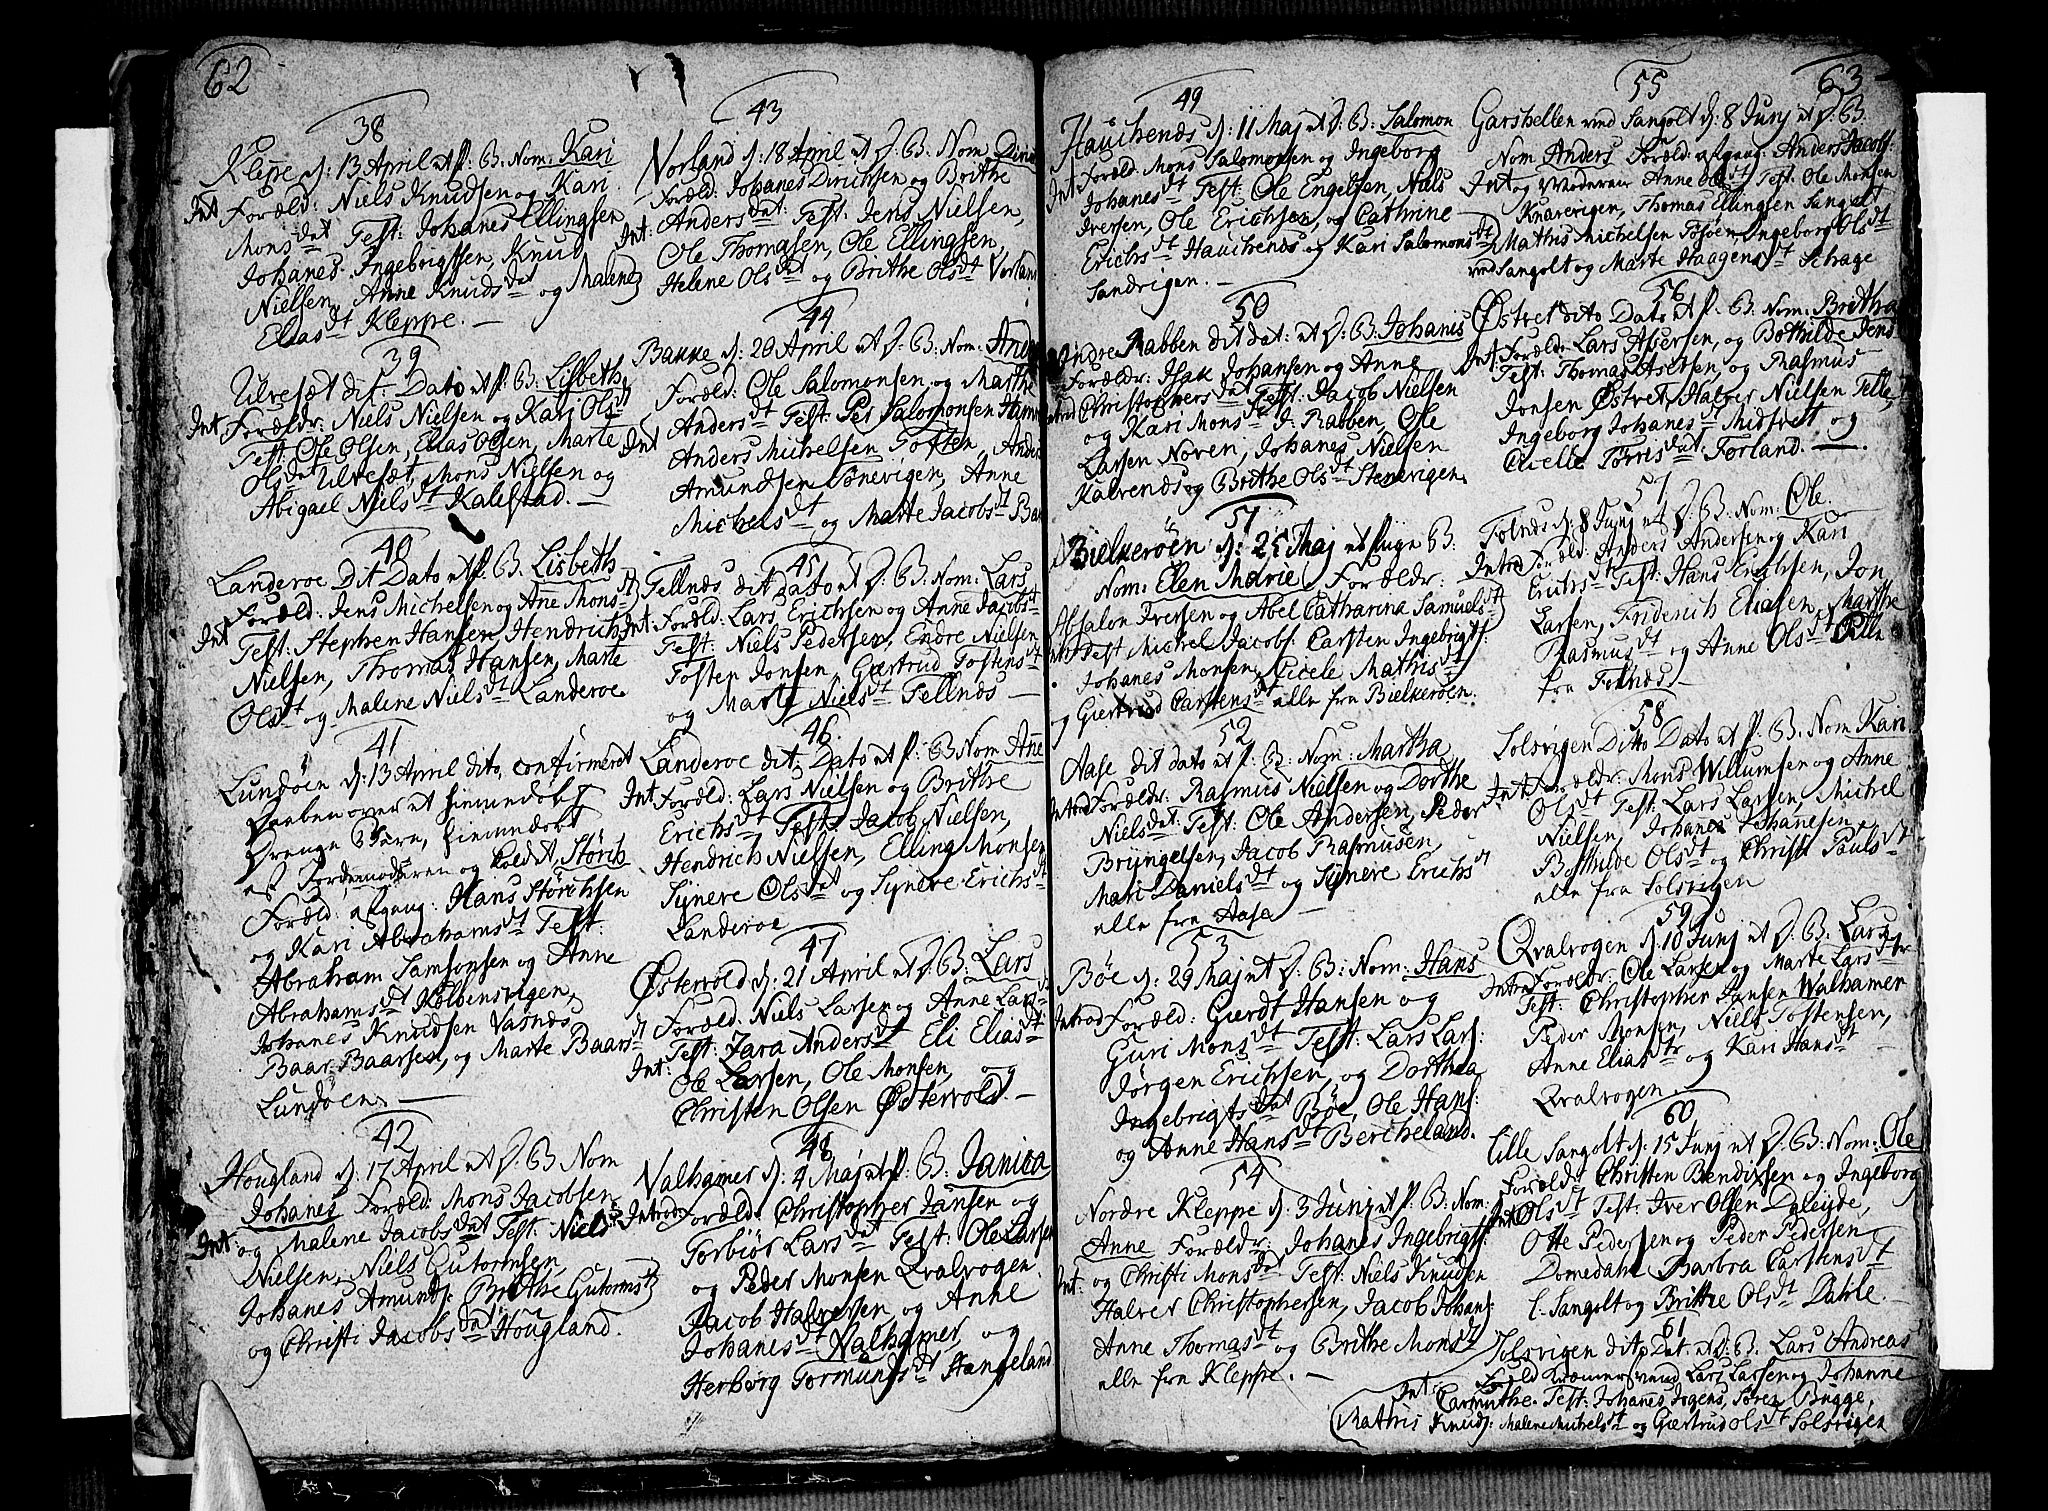 62
38
Kleppe d: 13 April et P. B: Nom: Kari
Int Foræld: Niels Knudsen og Kari
Mons dat Test: Johanes Ellingsen
Johanes Ingebrigtsen, Knud
Nielsen, Anne Knuds dt og Malene
Elias dt Kleppe. —
39
Ulvesæt dit: Dato et P. B: Lisbeth
Int Forældr: Niels Nielsen og Kari Ols dt
Test: Ole Olsen, Elias Olsen, Marte
Ols dt Ulvesæt, Mons Nielsen og
Abigael Niels dt Kalestad. —
40
Landeroe Dit Dato et P. B. Lisbeth
Foræld: Jens Michelsen og Ane Mons dt
Int Test: Stephen Hansen, Hendrich
Nielsen, Thomas Hansen, Marte
Ols dt og Malene Niels dt Landeroe
41
Lundøen d: 13 April dito, confirmeret
Daaben over et hiemmedøbt
Drenge Barn, hiemmedøbt
af Jordemoderen og kaldet Störch
Foræld: afgang: Hans Störchsen
og Kari Abrahams dt Test:
Abraham Samsonsen og Anne
Abrahams dt Kolbensvigen,
Johanes Knudsen Vasnæs
Baar Baarsen, og Marte Baars dt
Lundøen. —
42
Hougland d. 17 April et P. B Nom
Johanes Foræld: Mons Jacobsen
Int: og Malene Jacobs dat Test: Niels
Nielsen, Niels Gutormsen,
Johanes Amunds: Brithe Gutorms dt
og Christi Jacobs dat Hougland.
43
Vorland d: 18 April et P. B: Nom
Foræld: Johanes Dirichsen og Brithe
Int: Anders dat: Test: Jens Nielsen,
Ole Thomasen, Ole Ellingsen,
Helene Ols dat og Brithe Ols dt Vorland
44
Bakke d: 20 April et P: B: Nom:
Foræld: Ole Salomonsen, og Marthe
Int Anders dt Test: Per Salomonsen
Anders Michelsen Tosten, Anders
Amundsen Bonevigen, Anne
Michels dt og Marte Jacobs dt
45
Tellnæs dit Dato et P. B: Nom: Lars
Int: Foræld: Lars Erichsen og Anne Jacobs dt
Test: Niels Pedersen, Endre Nielsen
Tosten Jonsen, Giertrud Tostens dt
og Marte Niels dt Tellnæs —
46
Landeroe dit: Dato et P. B Nom Ane
Int Foræld: Lars Nielsen og Brithe
Erichs dt Test: Jacob Nielsen,
Hendrich Nielsen, Elling Monsen
Synere Ols dat og Synere Erichs dt
Landeroe
47
Østervold d: 21 April et P. B: Lars
Foræld: Niels Larsen og Anne Lars dt
Test: Zara Anders dt Eli Elias dt
Int: Ole Larsen, Ole Monsen, og
Christen Olsen Østervold. —
48
Valhamer d: 4 Maj et P. B. Janica
Introd Foræld: Christopher Jansen og
Torbiör Lars dat Test: Ole Larsen
og Peder Monsen Qvalvogen
Jacob Halversen, og Anne
Johanes dt Valhamer, og
Herborg Gormunds dt Hangeland
49
Hauchenæs d: 11 Maj et P. B: Salomon
Int Foræld: Mons Salomonsen og Ingeborg
Johanes dt Test: Ole Engelsen, Niels
Iversen, Ole Erichsen, og Cathrine
Erichs dt Hauchenæs og Kari Salomons dt
Sandvigen. —
50
Indre Rabben dit dat: et P: B: Johanis
Forældr: Isak Johansen og Anne
Christophers dat Test: Jacob Nielsen
og Kari Mons dt J. Rabben, Ole
Larsen Noren, Johanes Nielsen
Kalvenæs og Brithe Ols dt Stenevigen.
51
Bielkerøen d: 25 Maj et Pige B:
Nom: Elen Marie Forældr:
Absalon Iversen og Abel Catharina Samuels dt
Test Michel Jacobs: Carsten Ingebrigts:
Johanes Monsen, Cicele Mathis dt
og Giertrud Carstens dt alle fra Bielkerøen.
52
Aase dit dato et P. B: Nom: Martha
Introd Forældr: Rasmus Nielsen og Dorthe
Niels dat: Test: Ole Andersen, Peder
Bryngelsen, Jacob Rasmusen,
Mari Daniels dt og Synere Erichs dt
alle fra Aase —
53
Bøe d: 29 Maj et P. B: Nom: Hans
Introd Foræld: Gierdt Hansen og
Guri Mons dt Test: Lars Lars:
Jørgen Erichsen, og Dorthea
Ingebrigts dat Bøe, Ole Hans:
og Anne Hans dt Bercheland.
54
Nordre Kleppe d. 3 Junj et P. B: Nom:
Anne Forældr: Johanes Ingebrigts:
Int: og Christi Mons dat Test: Niels Knudsen
Halver Christophersen, Jacob Johans:
Anne Thomas dt og Brithe Mons dt
alle fra Kleppe. —
63
55
Garshellen ved Sangolt d: 8 Junj et P: B.
Nom: Anders Foræld: afgang: Anders Jacobs:
Int og Moderen Anne Ols dt Test: Ole Monsen
Knarevigen, Thomas Ellingsen Sangolt
Mathis Michelsen Tosøen, Ingeborg Ols dt
ved Sangolt og Marte Haagens dt Schage
56
Østvet dito Dato et P. B: Nom: Britha
Int Foræld: Lars Assersen, og Bothilde Jens dt
Test: Thomas Assersen, og Rasmus
Jonsen Østvet, Halver Nielsen Telle,
Ingeborg Johanes dt Midtvet og
Cicelle Törris dat: Forland. —
57
Folnæs d: 8 Junj et P. B: Nom: Ole.
Introd Foræld: Anders Andersen og Kari
Erichs dt Test: Hans Erichsen, Jon
Larsen, Friderich Eliasen, Marthe
Rasmus dt og Anne Ols dt
fra Folnæs —
58
Solsvigen Ditto Dato et P. B. Nom Kari
Int Forældr: Mons Willumsen og Anne
Ols dt Test: Lars Larsen, Michel
Nielsen, Johanes Johannesen,
Bothilde Ols dt og Christi Pauls dt
alle fra Solsvigen
59
Qvalvogen d: 10 Junj et P. B: Lars
Introd Forældr: Ole Larsen og Marte Lars dtr
Test: Christopher Jansen Walhamer
Peder Monsen, Niels Tostensen,
Anne Elias dtr og Kari Hans dt
Qvalvogen.
60
Lille Sangolt d: 15 Junj et P. B: Nom: Ole
Foræld: Christen Bendixsen og Ingeborg
Int Ols dt Test: Iver Olsen Daleyde,
Otte Pedersen og Peder Pedersen
Domedahl Barbra Carstens dt
L. Sangolt og Brithe Ols dt Dahle.
61
Solsvigen dito Dat: et P. B: Lars Andreas
Foræld Lars Larsen og Johanne
Int: Carmuthe. Test: Johanes Jogens, Sören Brygge,
Mathis Knuds: Malene Michels dt og Giertrud Ols dt Solsvigen